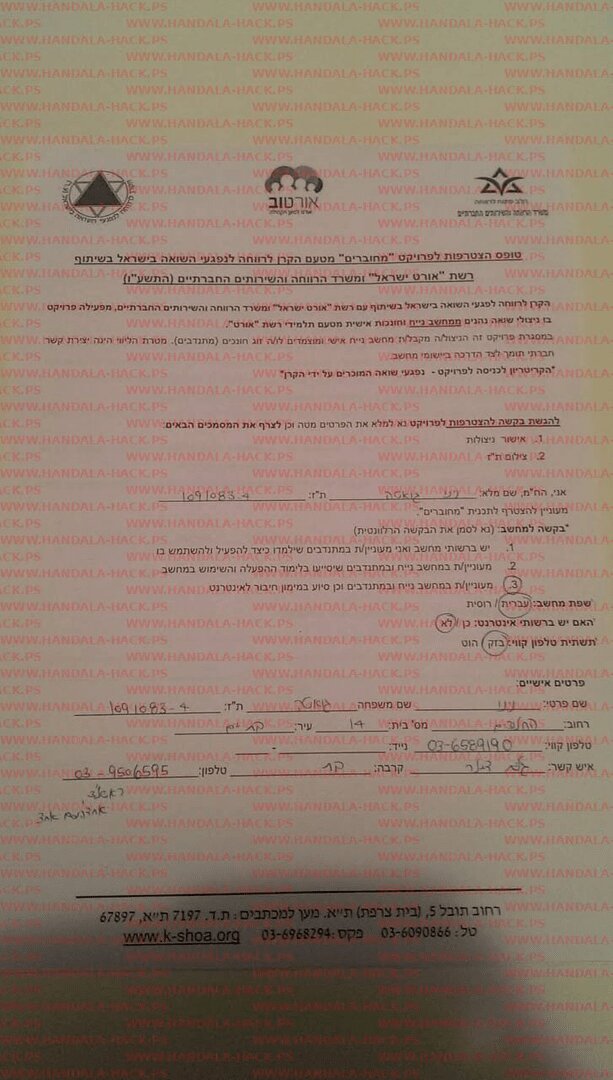 WWW.HANDALA-HACK.PS
אורטוב
משרד הרווחה והשירותים החברתיים
טופס הצטרפות לפרויקט "מחוברים" מטעם הקרן לרווחה לנפגעי השואה בישראל בשיתוף
רשת "אורט ישראל" ומשרד הרווחה והשירותים החברתיים (התשע"ו)
הקרן לרווחה לנפגעי השואה בישראל בשיתוף עם רשת "אורט ישראל" ומשרד הרווחה והשירותים החברתיים, מפעילה פרויקט
בו ניצולי שואה נהנים ממחשב נייח וחונכות אישית מטעם תלמידי רשת "אורט".
במסגרת פרויקט זה הניצול/ה מקבל/ת מחשב נייח אישי ומוצמדים לו/ה זוג חונכים (מתנדבים). מטרת הליווי הינה יצירת קשר
חברתי תומך לצד הדרכה ביישומי מחשב.
*הקריטריון לכניסה לפרויקט - נפגעי שואה המוכרים על ידי הקרן*
להגשת בקשה להצטרפות לפרויקט נא למלא את הפרטים מטה וכן לצרף את המסמכים הבאים:
1. אישור ניצולות
2. צילום ת"ז
אני, הח"מ, שם מלא: ת"ז:
מעוניין להצטרף לתכנית "מחוברים".
*בקשה למחשב: (נא לסמן את הבקשה הרלוונטית)
1. יש ברשותי מחשב ואני מעוניין/ת במתנדבים שילמדו כיצד להפעיל ולהשתמש בו
2. מעוניין/ת במחשב נייח ובמתנדבים שיסייעו בלימוד ההפעלה והשימוש במחשב
3. מעוניין/ת במחשב נייח ובמתנדבים וכן סיוע במימון חיבור לאינטרנט
*שפת מחשב: עברית / רוסית
*האם יש ברשותי אינטרנט: כן / לא
*תשתית טלפון קווי: בזק / הוט
פרטים אישיים:
שם פרטי: שם משפחה: ת"ז:
רחוב: מס' בית: עיר:
טלפון קווי: נייד:
איש קשר: קרבה: טלפון:
רחוב תובל 5, (בית צרפת) ת"א. מען למכתבים: ת.ד. 7197 ת"א, 67897
טל: 03-6090866 פקס: 03-6968294 www.k-shoa.org